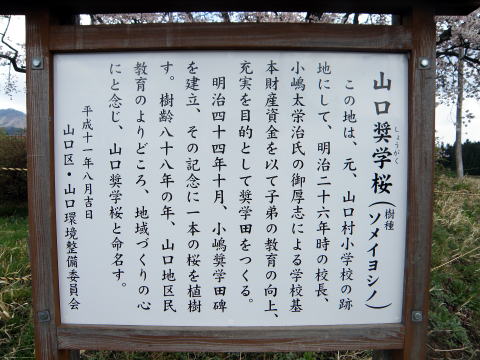 山口奨学桜(樹種 ソメイヨシノ)
しょうがく
この地は、元、山口村小学校の跡
地にして、明治二十六年時の校長、
小嶋太栄治氏の御厚志による学校基
本財産資金を以て子弟の教育の向上、
充実を目的として奨学田をつくる。
明治四十四年十月、小嶋奨学田碑
を建立、その記念に一本の桜を植樹
す。樹齢八十八年の年、山口地区民
教育のよりどころ、地域づくりの心
にと念じ、山口奨学桜と命名す。
平成十一年八月吉日
山口区・山口環境整備委員会